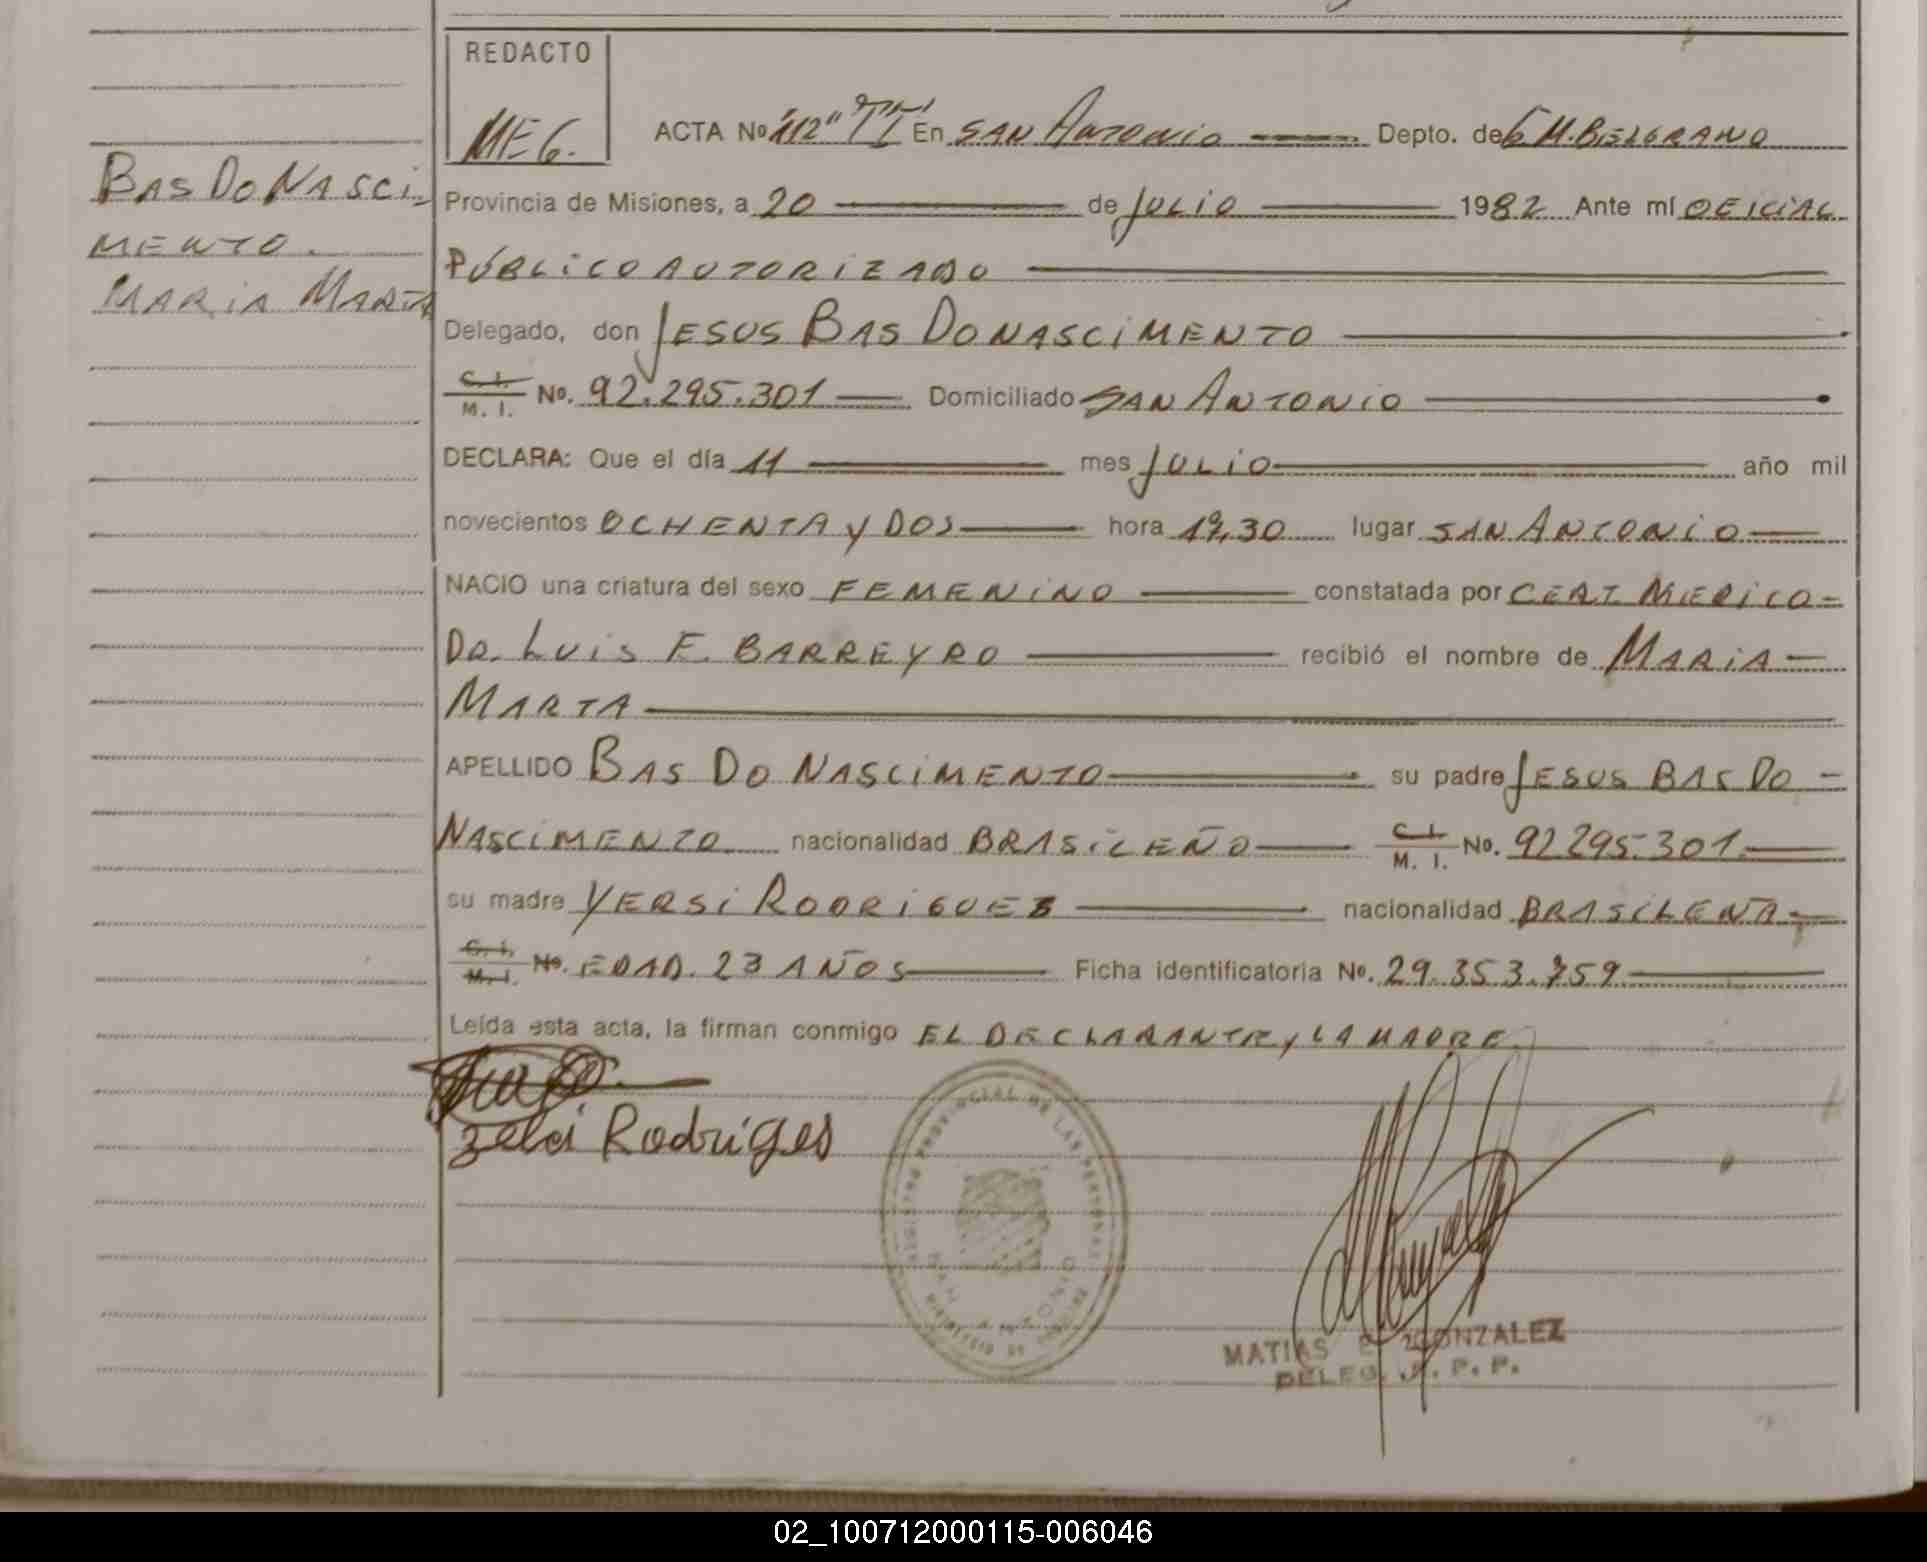 REDACTO
MEG.
ACTA No 112" TI En SAN ANTONIO Depto. de G M. BELGRANO
BAS DO NASCI-
MENTO.
MARIA MARTA
Provincia de Misiones, a 20 de JULIO 1982 Ante mí OFICIAL
PÚBLICO AUTORIZADO
Delegado, don JESUS BAS DO NASCIMENTO
C. I. M. I. No. 92.295.301 Domiciliado SAN ANTONIO
DECLARA: Que el día 11 mes JULIO año mil
novecientos OCHENTA y DOS hora 19,30 lugar SAN ANTONIO
NACIO una criatura del sexo FEMENINO constatada por CERT. MEDICO-
DR. LUIS F. BARREYRO recibió el nombre de MARIA
MARTA
APELLIDO BAS DO NASCIMENTO su padre JESUS BAS DO
NASCIMENTO nacionalidad BRASILEÑO C. I. M. I. No. 92 295.301.
su madre YERSI RODRIGUES nacionalidad BRASILEÑA
C. I. M. I. No. EDAD. 23 AÑOS Ficha identificatoria No. 29.353.759
Leída esta acta, la firman conmigo EL DECLARANTE y LA MADRE.
zelei Rodriges
REGISTRO PROVINCIAL DE LAS PERSONAS
SAN ANTONIO
MINISTERIO DE GOBIERNO
MATIAS E. GONZALEZ
DELEG. R. P. P.
02_100712000115-006046